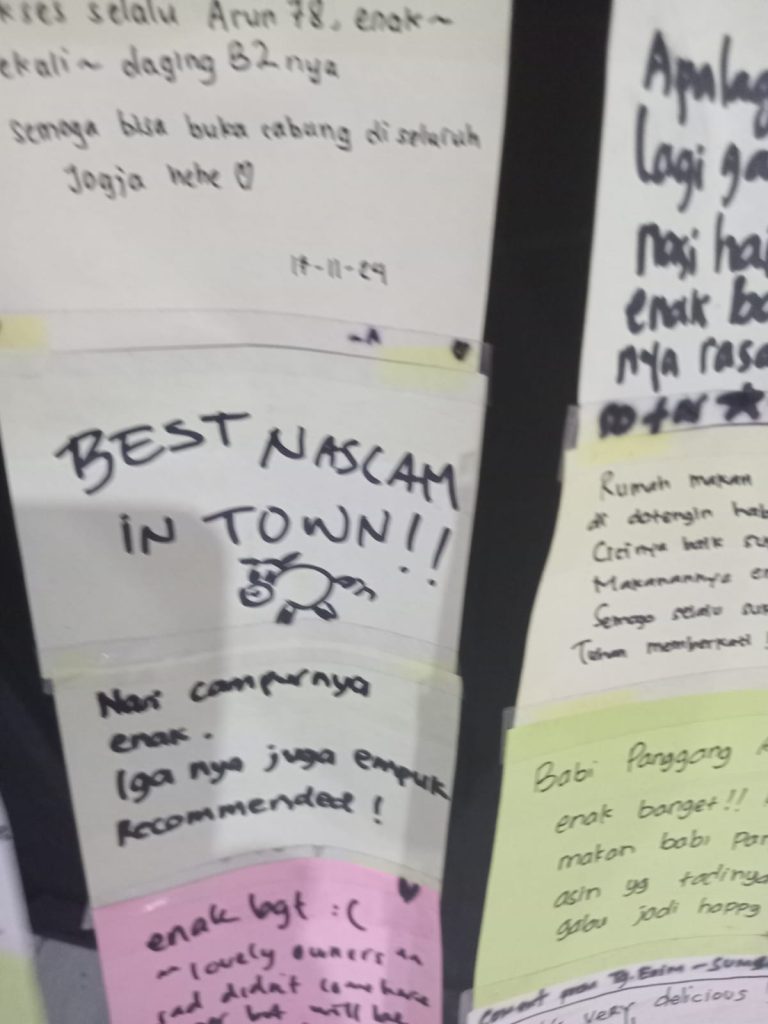 kses selalu Arun 78, enak~
ekali~ daging B2nya
semoga bisa buka cabang di seluruh
Jogja hehe
BEST NASCAM
iN TOWN!!
Nasi campurnya
enak.
Iga nya juga empuk
Recommended!
enak bgt :(
lovely owners
sad didn't come here
but will be
Apalag
lagi ga
nasi hai
enak ba
nya rasa
Rumah makan
di datengin hab
Cicinya baik su
Makanannya en
Semoga selalu sus
Tuhan memberkati!
Babi Panggang A
enak banget!!
makan babi pan
asin yg tadinya
galau jadi happy
very delicious